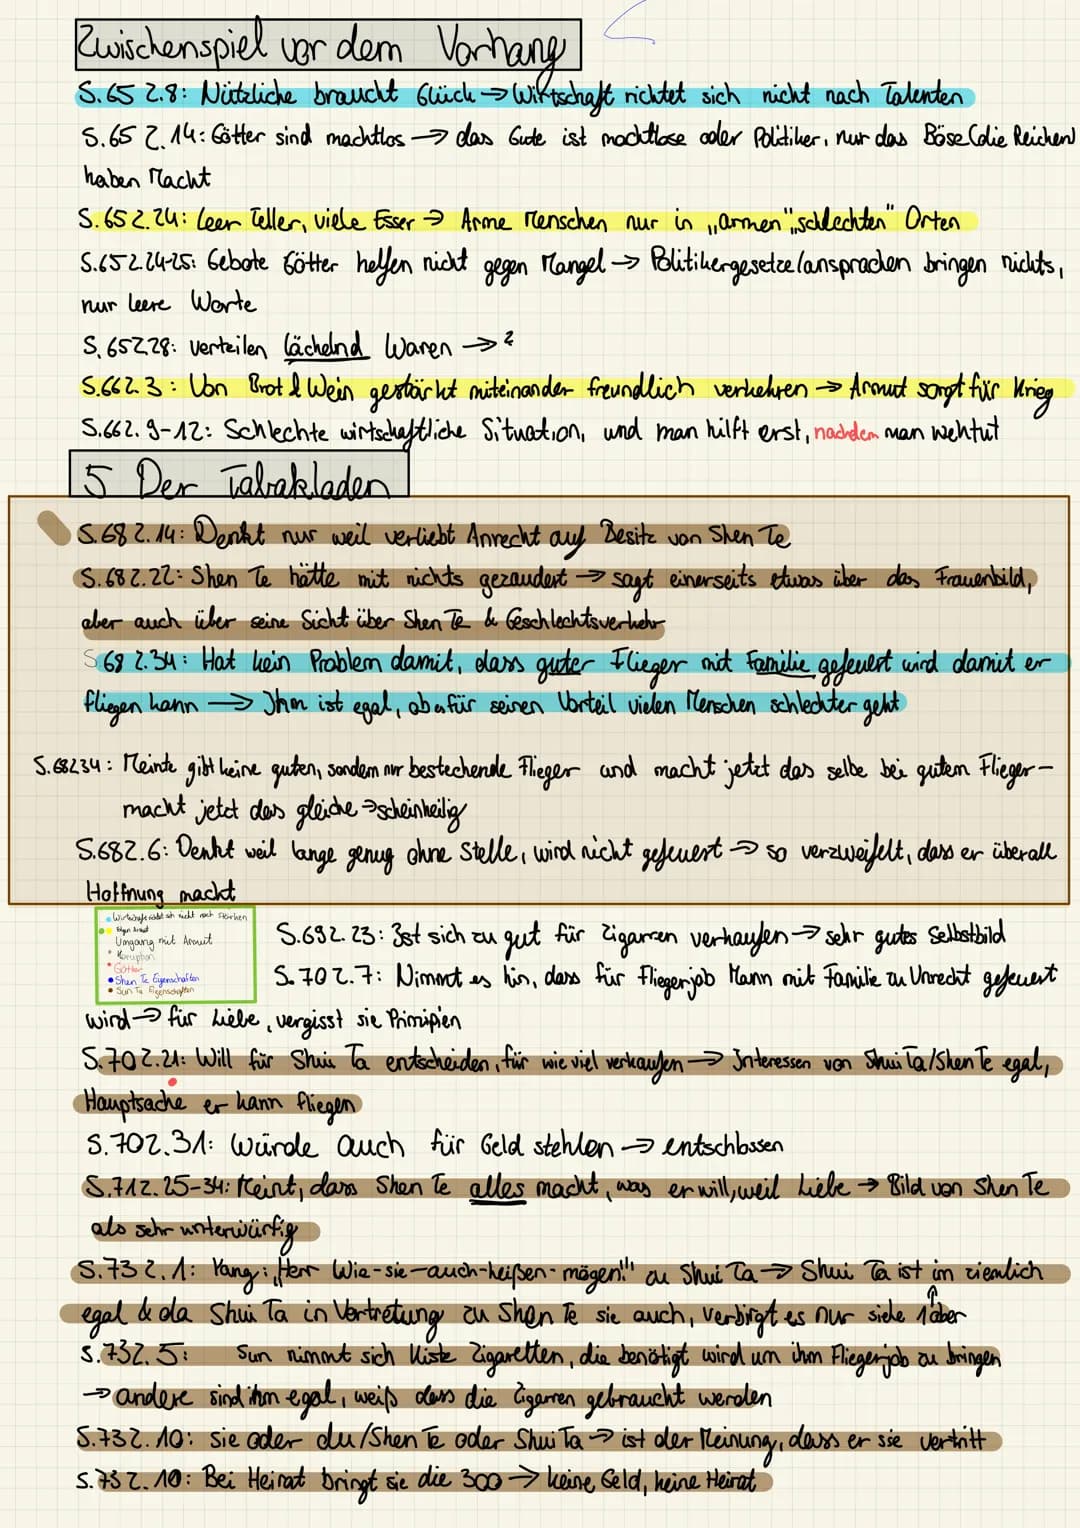 Zwischenspiel vor dem Vorhang
S.65 Z.8: Nützliche braucht Glück → Wirtschaft richtet sich nicht nach Talenten
S.65 Z.14: Götter sind machtlos → das Gute ist machtlose oder Politiker, nur das Böse (die Reichen)
haben Macht
S.65 Z.24: leer Teller, viele Esser → Arme Menschen nur in „armen" „schlechten" Orten
S.65 Z.24-25: Gebote Götter helfen nicht gegen Mangel → Politikergesetze/ansprachen bringen nichts,
nur leere Worte
S.65 Z.28: verteilen lächelnd Waren → ?
S.66 Z.3: Von Brot & Wein gestärkt miteinander freundlich verkehren → Armut sorgt für Krieg
S.66 Z.9-12: Schlechte wirtschaftliche Situation, und man hilft erst, nachdem man wehtut
5 Der Tabakladen
S.68 Z.14: Denkt nur weil verliebt Anrecht auf Besitz von Shen Te
S.68 Z.22: Shen Te hätte mit nichts gezaudert → sagt einerseits etwas über das Frauenbild,
aber auch über seine Sicht über Shen Te & Geschlechtsverkehr
S 68 Z.34: Hat kein Problem damit, dass guter Flieger mit Familie gefeuert wird damit er
fliegen kann → Ihm ist egal, ob für seinen Vorteil vielen Menschen schlechter geht
S.68 Z 34: Meinte gibt keine guten, sondern nur bestechende Flieger und macht jetzt das selbe bei gutem Flieger -
macht jetzt das gleiche → scheinheilig
S.68 Z.6: Denkt weil lange genug ohne Stelle, wird nicht gefeuert → so verzweifelt, dass er überall
Hoffnung macht
Wirtschaft richtet sich nicht nach Stärken
Armut
Umgang mit Armut
Korruption
Götter
Shen Te Eigenschaften
Sun Ta Eigenschaften
S.69 Z.23: Ist sich zu gut für Zigarren verkaufen → sehr gutes Selbstbild
S.70 Z.7: Nimmt es hin, dass für Fliegerjob Mann mit Familie zu Unrecht gefeuert
wird → für Liebe, vergisst sie Prinzipien
S.70 Z.21: Will für Shui Ta entscheiden, für wie viel verkaufen → Interessen von Shui Ta/Shen Te egal,
Hauptsache er kann fliegen
S.70 Z.31: Würde auch für Geld stehlen → entschlossen
S.71 Z.25-34: Meint, dass Shen Te alles macht, was er will, weil Liebe → Bild von Shen Te
als sehr unterwürfig
S.73 Z.1: Yang: „Herr Wie-sie-auch-heißen-mögen!" zu Shui Ta → Shui Ta ist im ziemlich
egal & da Shui Ta in Vertretung zu Shen Te sie auch, verbirgt es nur siehe 1 aber
S.73 Z.5: Sun nimmt sich Kiste Zigaretten, die benötigt wird um ihm Fliegerjob zu bringen
→ andere sind ihm egal, weiß dass die Zigarren gebraucht werden
S.73 Z.10: sie oder du/Shen Te oder Shui Ta → ist der Meinung, dass er sie vertritt
S.73 Z.10: Bei Heirat bringt sie die 300 → keine Geld, keine Heirat